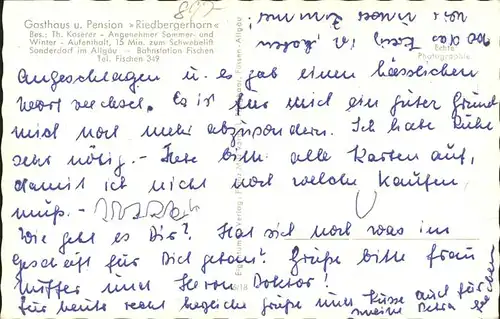 Gasthaus u. Pension »Riedbergerhorn«
Bes.: Th. Kaserer - Angenehmer Sommer- und
Winter - Aufenthalt, 15 Min. zum Schwebelift
Sonderdorf im Allgäu - Bahnstation Fischen
Tel. Fischen 349
Echte
Photographie
angeschlagen u. es gab einen hässlichen
Wortwechsel. Es ist für mich ein guter Grund
mich noch mehr abzusondern. Ich habe Ruhe
sehr nötig. - Hebe bitte alle Karten auf,
damit ich nicht noch welche kaufen
muß. -
Wie geht es Dir? Hat sich noch was im
Geschäft für Dich getan? Grüße bitte Frau
und Herrn Doktor!
für heute recht herzliche Grüße und Küsse auch für
meine Petra